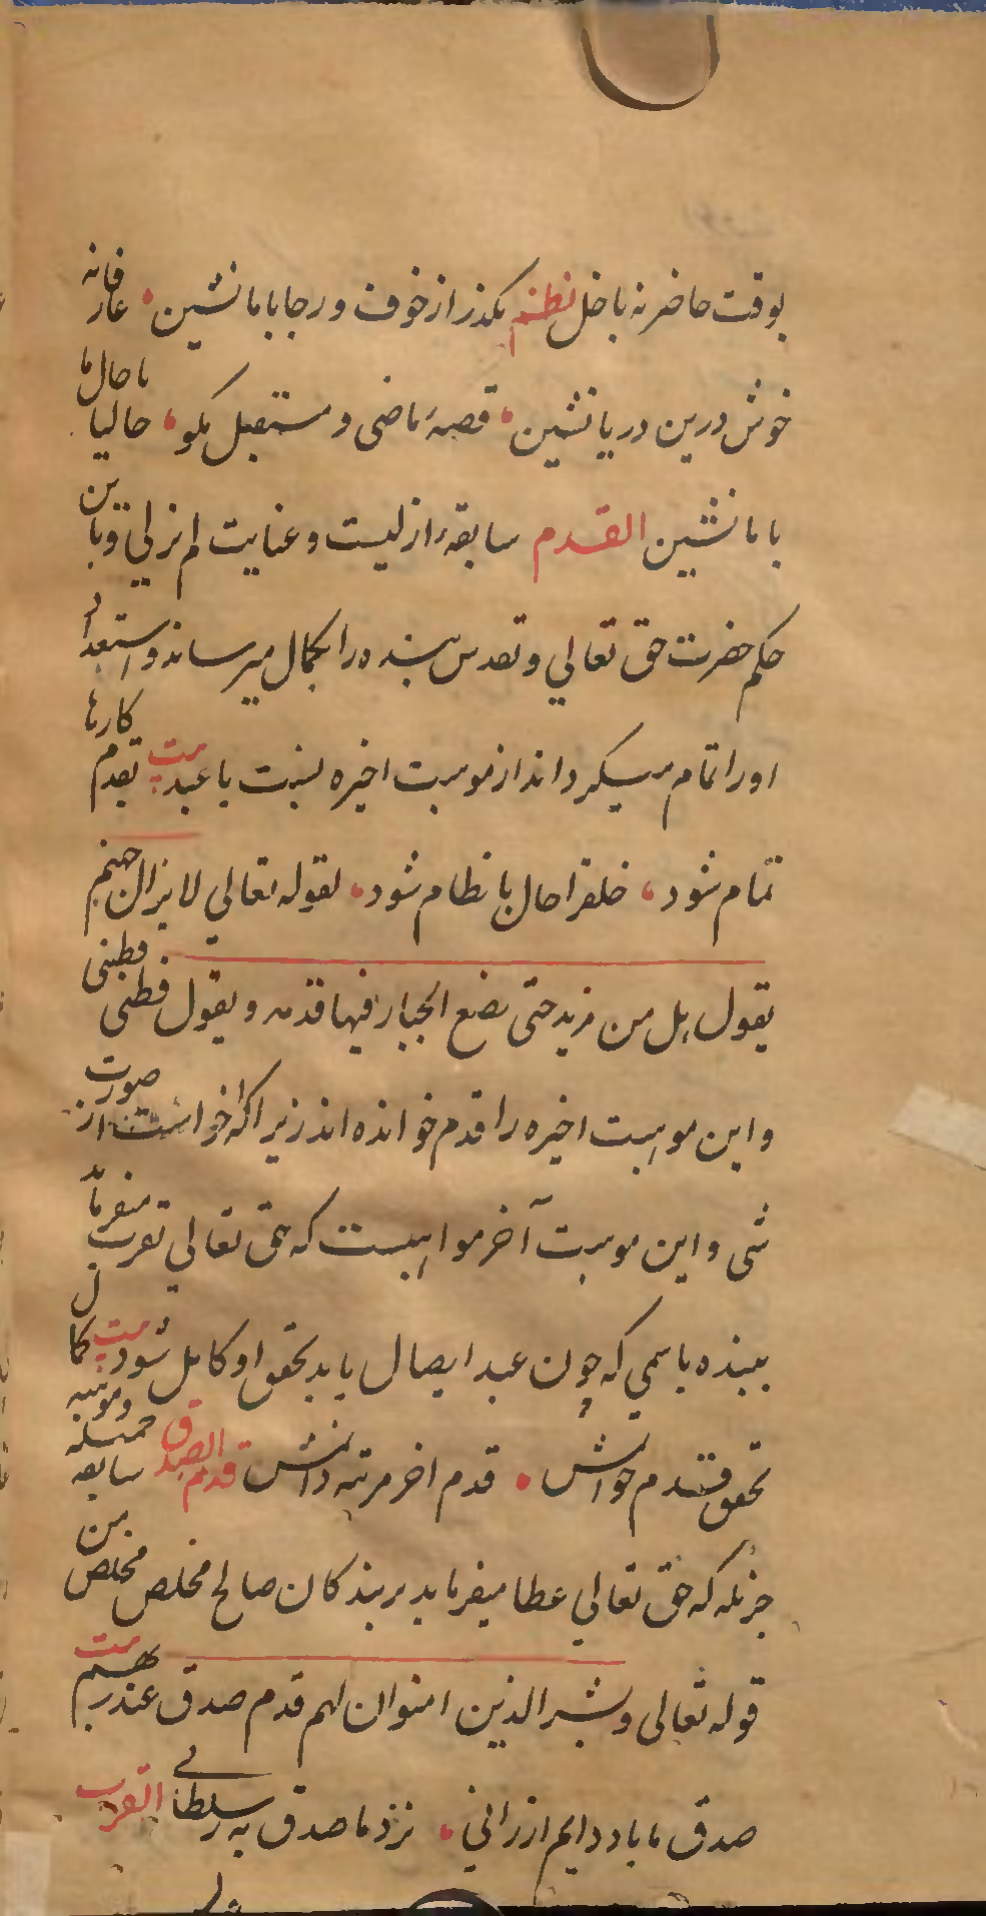 بوقت حاضر نه باخل نظم بگذر از خوف و رجا با ما نشین عارفانه
خوش درین دریا نشین قصهٔ ماضی و مستقبل مگو حالیا با حال ما
با ما نشین القدم سابقهٔ ازلیست و عنایت لم یزلی و باین
حکم حضرت حق تعالی و تقدس بنده را بکمال میرساند و استعداد
او را تمام میگرداند از موهبت اخیره نسبت با عبد بیت بقدم کارها
تمام شود خلقرا حال با نظام شود لقوله تعالی لا یزال جهنم
یقول هل من مزید حتی یضع الجبار فیها قدمه و یقول قطنی قطنی
و این موهبت اخیره را قدم خوانده اند زیرا که آخر است از صورت
شی و این موهبت آخر مواهبست که حق تعالی تقرب میفرماید
ببنده باسمی که چون عبد ایصال یابد بحقق او کامل شود بیت کمال
تحقق قدم خوانش قدم آخر مرتبه دانش قدم الصدق سابقه جمیله و موهبه
جزیله که حق تعالی عطا میفرماید بر بندکان صالح مخلص مخلصین
قوله تعالی و بشر الذین امنوا ان لهم قدم صدق عند ربهم بیت
صدق ما باد دایم ارزانی نزد ما صدق به ز سلطانی القرب